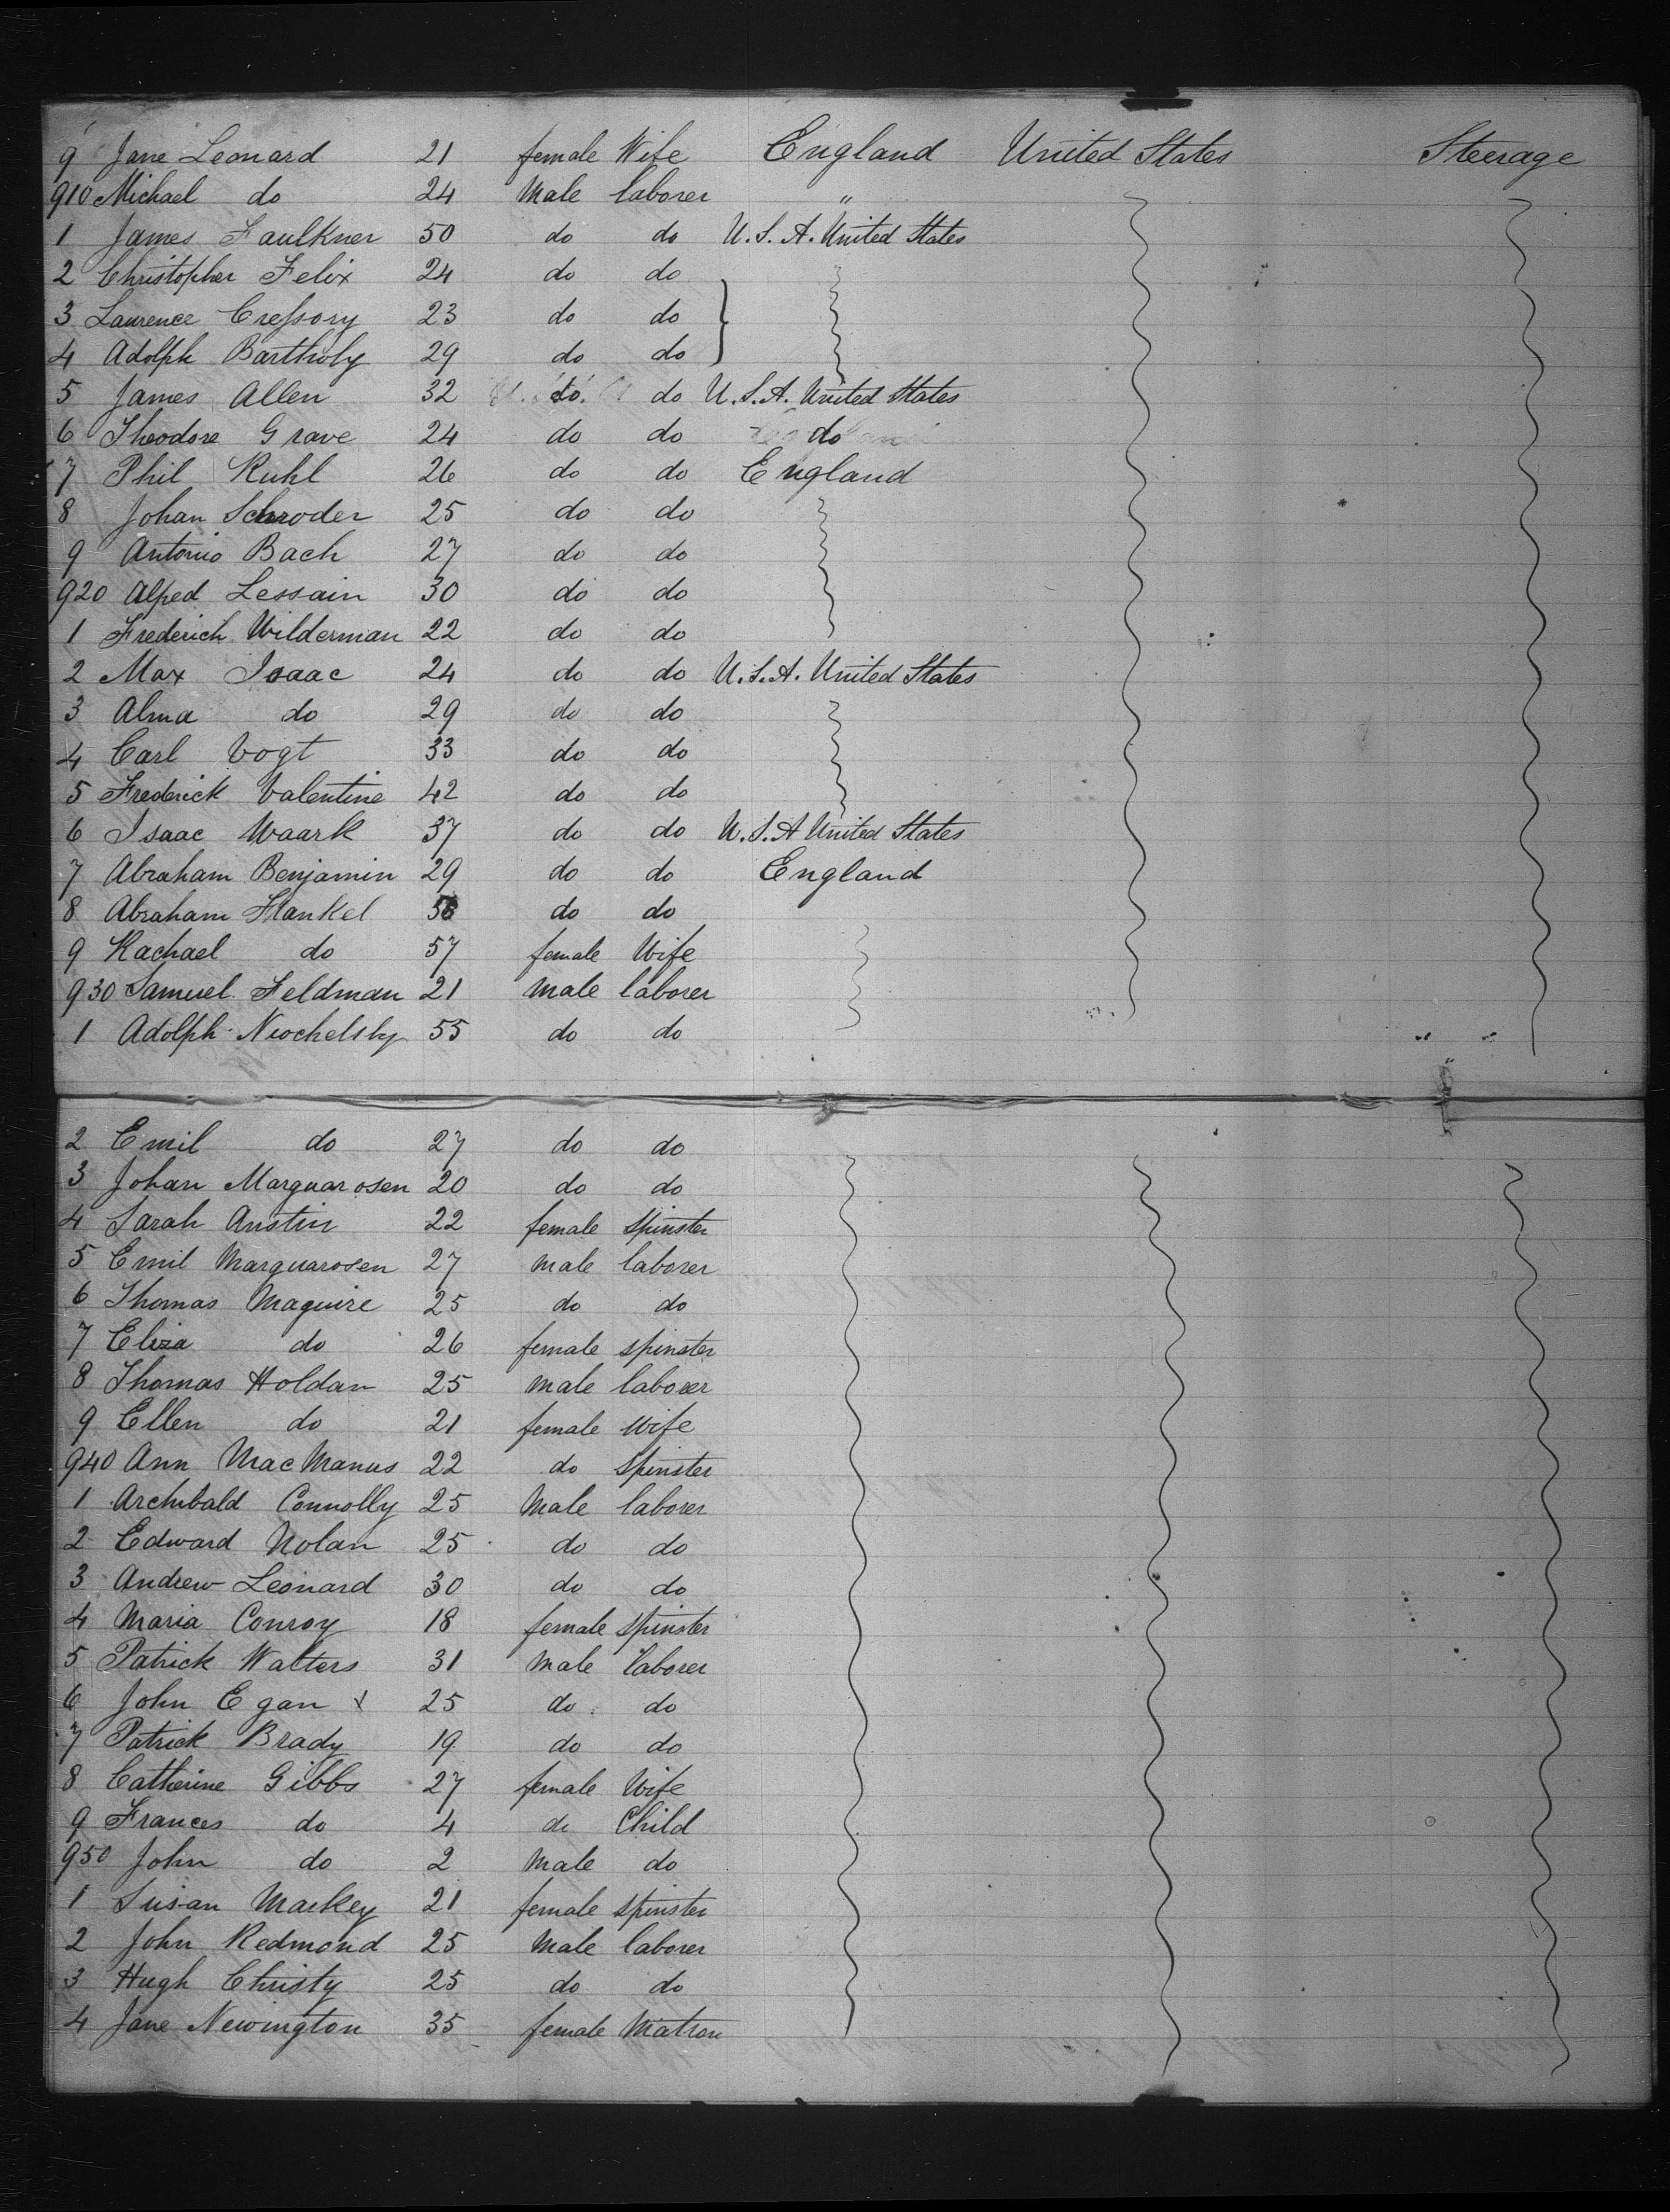 9 Jane Leonard 21 female Wife England United States Steerage
910 Michael do 24 Male laborer "
1 James Faulkner 50 do do U.S.A. United States
2 Christopher Felix 24 do do
3 Laurence Cressory 23 do do
4 Adolph Bartholy 29 do do
5 James Allen 32 do do U.S.A. United States
6 Theodore Grave 24 do do do
7 Phil Ruhl 26 do do England
8 Johan Schroder 25 do do
9 Antonio Bach 27 do do
920 Alped Lessain 30 do do
1 Frederich Wilderman 22 do do
2 Max Isaac 24 do do U.S.A. United States
3 Alma do 29 do do
4 Carl Vogt 33 do do
5 Frederick Valentine 42 do do
6 Isaac Waark 37 do do U.S.A United States
7 Abraham Benjamin 29 do do England
8 Abraham Flankel do do
9 Rachael do 57 female Wife
930 Samuel Feldman 21 Male laborer
1 Adolph Niochelsky 55 do do
2 Emil do 27 do do
3 Johan Marguarosen 20 do do
4 Sarah Austin 22 female spinster
5 Emil Marguarosen 27 Male laborer
6 Thomas Maguire 25 do do
7 Eliza do 26 female spinster
8 Thomas Holdan 25 Male laborer
9 Ellen do 21 female Wife
940 Ann MacManus 22 do spinster
1 Archibald Connolly 25 Male laborer
2 Edward Nolan 25 do do
3 Andrew Leonard 30 do do
4 Maria Conroy 18 female spinster
5 Patrick Walters 31 Male laborer
6 John Egan x 25 do do
7 Patrick Brady 19 do do
8 Catherine Gibbs 27 female Wife
9 Frances do 4 do Child
950 John do 2 Male do
1 Susan Markey 21 female spinster
2 John Redmond 25 Male laborer
3 Hugh Christy 25 do do
4 Jane Newington 35 female Matron